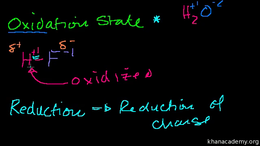 Oxidation State * H₂⁺¹O⁻²
δ⁺ δ⁻
H⁺¹ – F⁻¹
oxidized
Reduction ⇒ Reduction of
charge
khanacademy.org